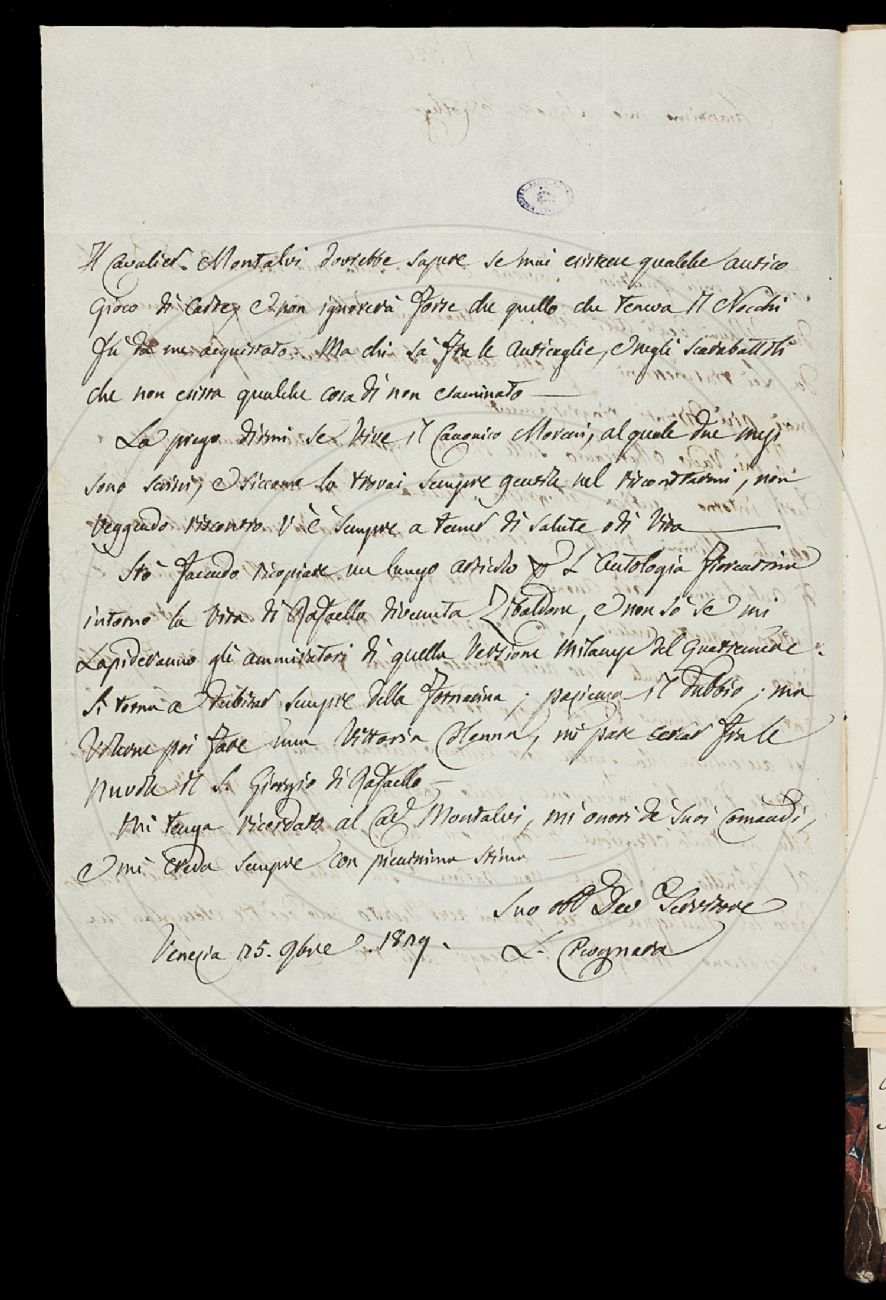 Il Cavalier Montalvi dovrebbe sapere se mai esistesse qualche antico
Gioco di Carte, e non ignorerà forse che quello che teneva il Nocchi
fù da me acquistato. Ma chi sà fra le anticaglie, e negli scarabattoli
che non esista qualche cosa di non esaminato —
La prego dirmi se vive il Canonico Moreni, al quale due mesi
sono scrissi, e siccome lo trovai sempre gentile nel riscontrarmi, non
veggendo riscontro v'è sempre a temer di salute o di vita —
Stò facendo ricopiare un lungo articolo per l'Antologia fiorentina
intorno la vita di Rafaello divenuta Zibaldone, e non sò se mi
Lapideranno gli ammiratori di quella versione milanese del Quatremere.
Si torna a dubitar sempre della Fornarina; pazienza il dubbio; ma
volerne poi fare una Vittoria Colonna, mi pare cercar fra le
nuvole il S. Giorgio di Rafaello —
Mi tenga ricordato al Cav Montalvi, mi onori de' suoi comandi,
e mi creda sempre con pienissima stima —
Suo obb Dev Servitore
Venezia 25. 9bre 1829.
L. Cicognara